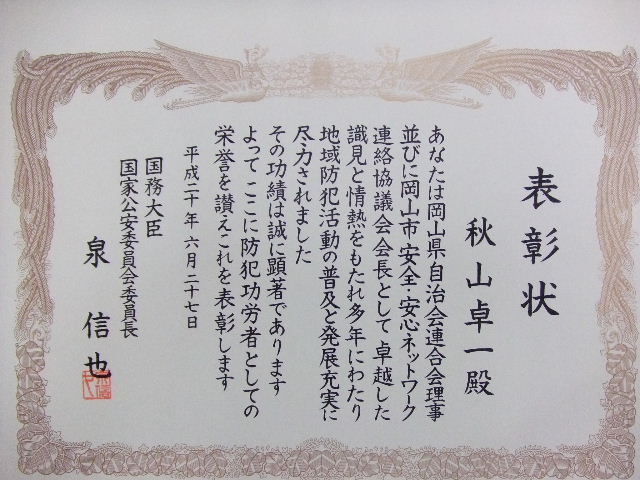 表彰状
秋山卓一殿
あなたは岡山県自治会連合会理事
並びに岡山市安全・安心ネットワーク
連絡協議会会長として卓越した
識見と情熱をもたれ多年にわたり
地域防犯活動の普及と発展充実に
尽力されました
その功績は誠に顕著であります
よってここに防犯功労者としての
栄誉を讃えこれを表彰します
平成二十年六月二十七日
国務大臣
国家公安委員会委員長
泉信也